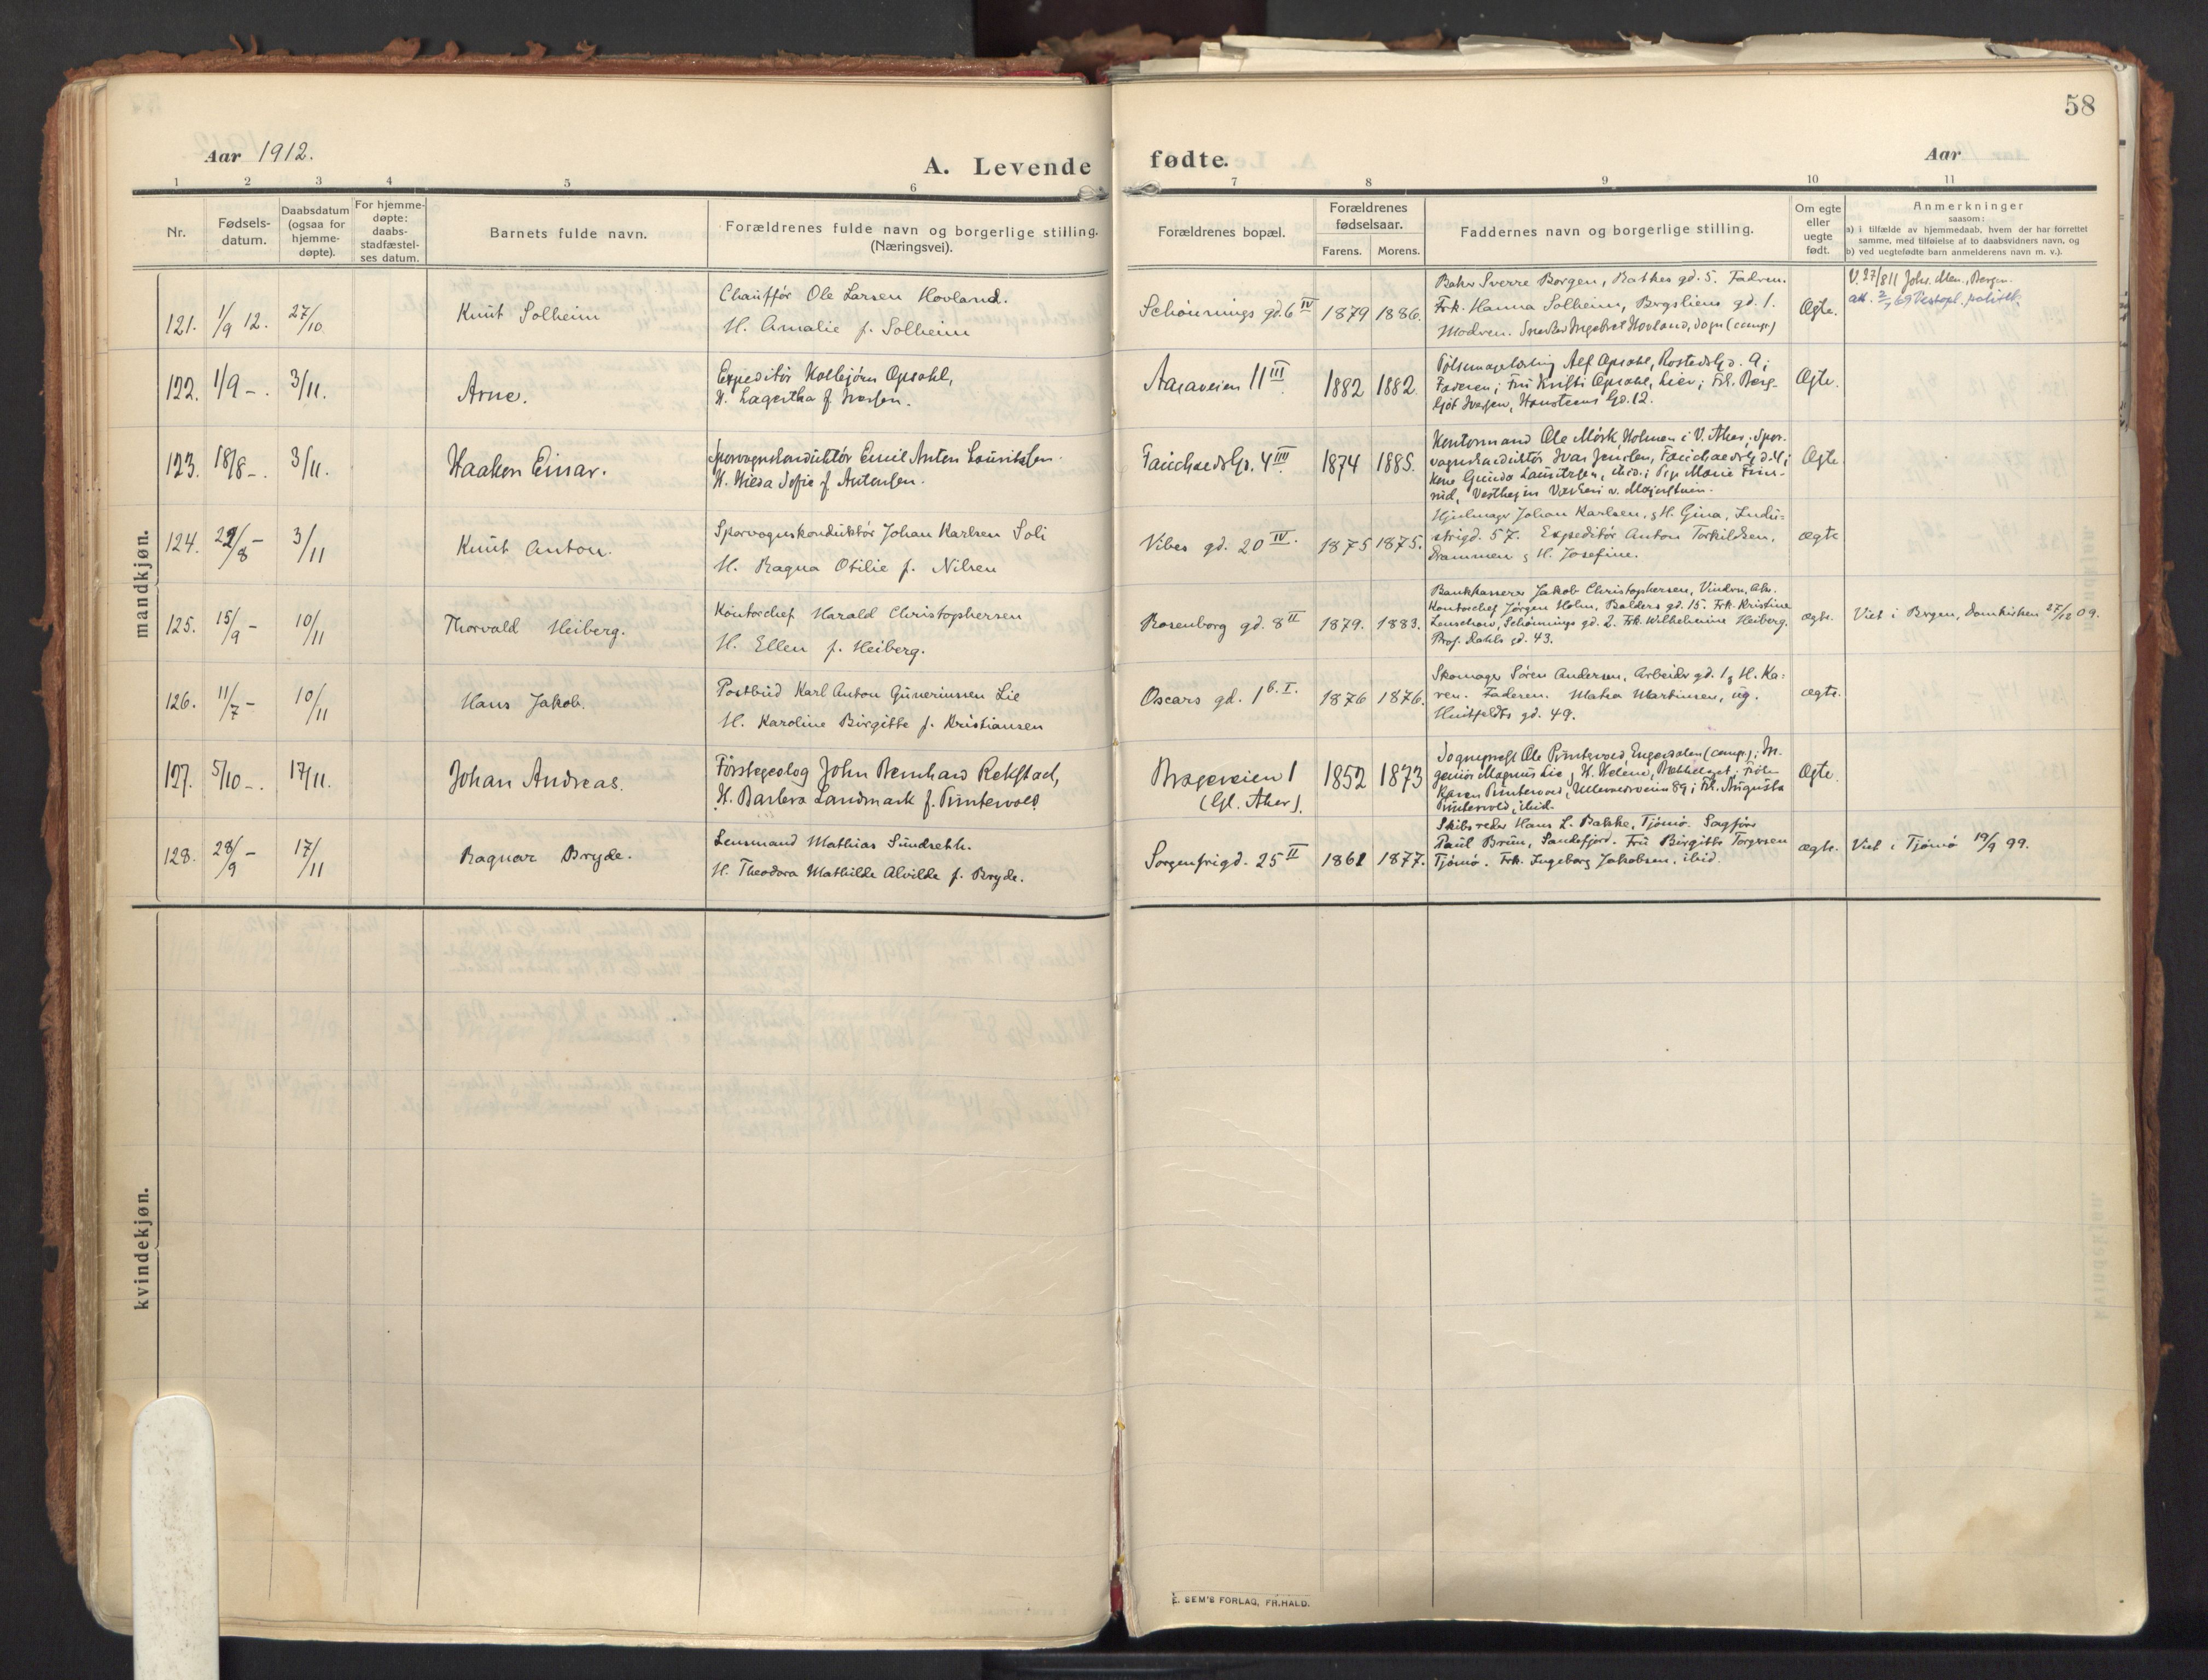 58
Aar 1912.
A. Levende fødte.
Aar
1 2 3 4 5 6 7 8 9 10 11
Nr.
Fødsels-
datum.
Daabsdatum
(ogsaa for
hjemme-
døpte).
For hjemme-
døpte:
daabs-
stadfæstel-
ses datum.
Barnets fulde navn.
Forældrenes fulde navn og borgerlige stilling.
(Næringsvei).
Forældrenes bopæl.
Forældrenes
fødselsaar.
Farens. Morens.
Faddernes navn og borgerlige stilling.
Om egte
eller
uegte
født.
Anmerkninger
saasom:
a) i tilfælde av hjemmedaab, hvem der har forrettet
samme, med tilføielse af to daabsvidners navn, og
b) ved uegtefødte barn anmelderens navn m. v.).
mandkjøn.
121. 1/9 12. 27/10 Knut Solheim
Chauffør Ole Larsen Hovland.
H. Amalie f. Solheim
Schøunings gd. 6 IV 1879 1886.
Baker Sverre Borgen, Rathkes gd. 5. Fadren.
Frk. Hanna Solheim, Bregsliens gd. 1.
Modren. Snedker Ingebret Hovland, Sogn (comp.)
Ægte.
V. 27/8 11 Johs. Men., Bergen.
122. 1/9 -. 3/11. Arne.
Expeditør Kolbjørn Opsahl,
H. Lagertha f. Iversen.
Aasaveien 11 III 1882 1882.
Alf Opsahl, Rosteds Gd. 9;
Faderen; Fru Kristi Opsahl, Lier; Frk. Berg-
ljot Iversen, Hansteens Gd. 12.
Ægte.
123. 18/8 -. 3/11. Haakon Einar.
Sporvognskonduktør Emil Anton Lauritzsen.
H. Hilda Sofie f. Antonsen.
Fauchaldsgd. 4 III 1874 1885.
Kontormand Ole Mørk, Holmen i V. Aker; Spor-
vognskonduktør Ivar Jensen, Fauchaldsgd. 4;
Kone Gunda Lauritzsen, ibid.; Pige Marie Finn-
rud, Vestheim Vaskeri v. Majorstuen.
Ægte
124. 22/8 - 3/11 Knut Anton.
Sporvognskonduktør Johan Karlsen Soli
H. Ragna Otilie f. Nilsen
Vibes gd. 20 IV. 1875 1875.
Hjulmager Johan Karlsen, & H. Gina, Indu-
strigd. 57. Expeditør Anton Torkildsen,
Drammen & H. Josefine.
ægte
125. 15/9 - 10/11 Thorvald Heiberg.
Kontorchef Harald Christophersen
H. Ellen f. Heiberg.
Rosenborg gd. 8 II 1879. 1883.
Bankkasserer Jakob Christophersen, Vindern, Aker.
Kontorchef Jørgen Holm, Balders gd. 15. Frk. Kristine
Lenschow, Schønnings gd. 2. Frk. Wilhelmine Heiberg.
Prof. Dahls gd. 43.
ægte.
Viet i Bergen, Domkirken 27/12 09.
126. 11/7 - 10/11 Hans Jakob.
Postbud Karl Anton Gunerinssen Lie
H. Karoline Birgitte f. Kristiansen
Oscars gd. 1 b. I. 1876 1876.
Skomager Søren Andersen, Arbeider gd. 1, & H. Ka-
ren. Faderen. Matea Martinsen, ug.
Huitfeldts gd. 49.
ægte.
127. 5/10 -. 17/11. Johan Andreas.
Førstegeolog John Bernhard Rekstad,
H. Barbra Landmark f. Puntervold
Bragesveien 1
(Gl. Aker).
1852 1873
Sogneprest Ole Puntervold, Engerdalen (comp.); In-
geniør Magnus Lie & H. Helene, Bækkelaget; Frøken
Karen Puntervold, Ullevoldsveien 89; Frk. Augusta
Puntervold, ibid.
Ægte.
128. 28/9 - 17/11 Ragnar Bryde.
Lensmand Mathias Sundseth.
H. Theodora Mathilde Alvilde f. Bryde.
Sorgenfrigd. 25 II 1861 1877.
Skibsreder Hans L. Bakke, Tjømø. Sagfører
Paul Bruun, Sandefjord. Fru Birgitte Torgersen
Tjømø. Frk. Ingeborg Jakobsen, ibid.
ægte.
Viet i Tjømø 19/9 99.
kvindekjøn.
E. SEM'S FORLAG, FR.HALD.